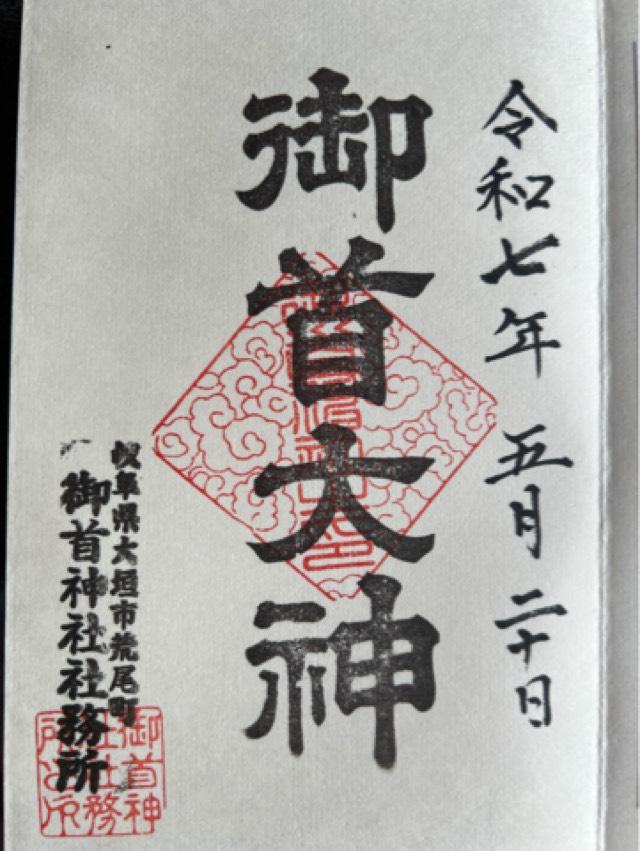 令和七年 五月 二十日
御首大神
岐阜県大垣市荒尾町
御首神社社務所
御首神
社社務
所之印